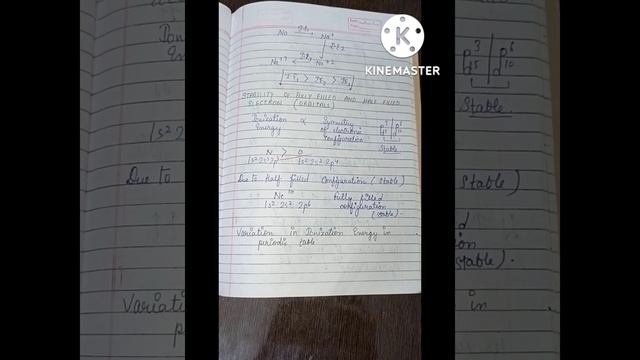 KINEMASTER
Na IE₁ Na⁺
IE₂
Na⁺³ IE₃ Na⁺²
IE₃ > IE₂ > IE₁
STABILITY OF FULLY FILLED AND HALF FILLED
ELECTRON (ORBITALS)
Ionization Energy ∝ Symmetry of electronic configuration p³ p⁶ d⁵ d¹⁰ Stable
N > O
1s² 2s² 2p³ 1s² 2s² 2p⁴
Due to Half filled Configuration (stable)
Ne¹⁰ fully filled
1s² 2s² 2p⁶ configuration
(stable)
Variation in Ionization Energy in
periodic table